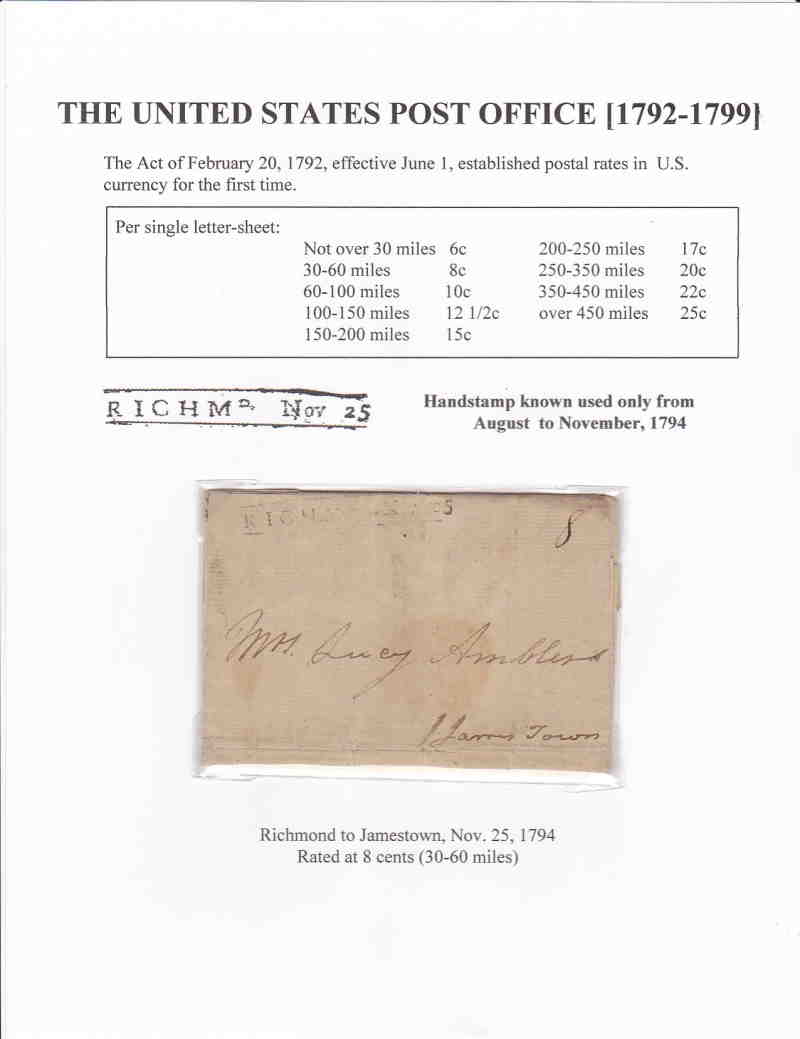 THE UNITED STATES POST OFFICE [1792-1799}
The Act of February 20, 1792, effective June 1, established postal rates in U.S.
currency for the first time.
Per single letter-sheet:
Not over 30 miles 6c 200-250 miles 17c
30-60 miles 8c 250-350 miles 20c
60-100 miles 10c 350-450 miles 22c
100-150 miles 12 1/2c over 450 miles 25c
150-200 miles 15c
RICHMD, Nov 25
Handstamp known used only from
August to November, 1794
RICHM 25
8
Mrs. Lucy Amblers
James Town
Richmond to Jamestown, Nov. 25, 1794
Rated at 8 cents (30-60 miles)